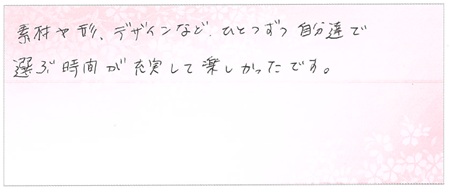 素材や形、デザインなど、ひとつずつ自分達で
選ぶ時間が充実して楽しかったです。